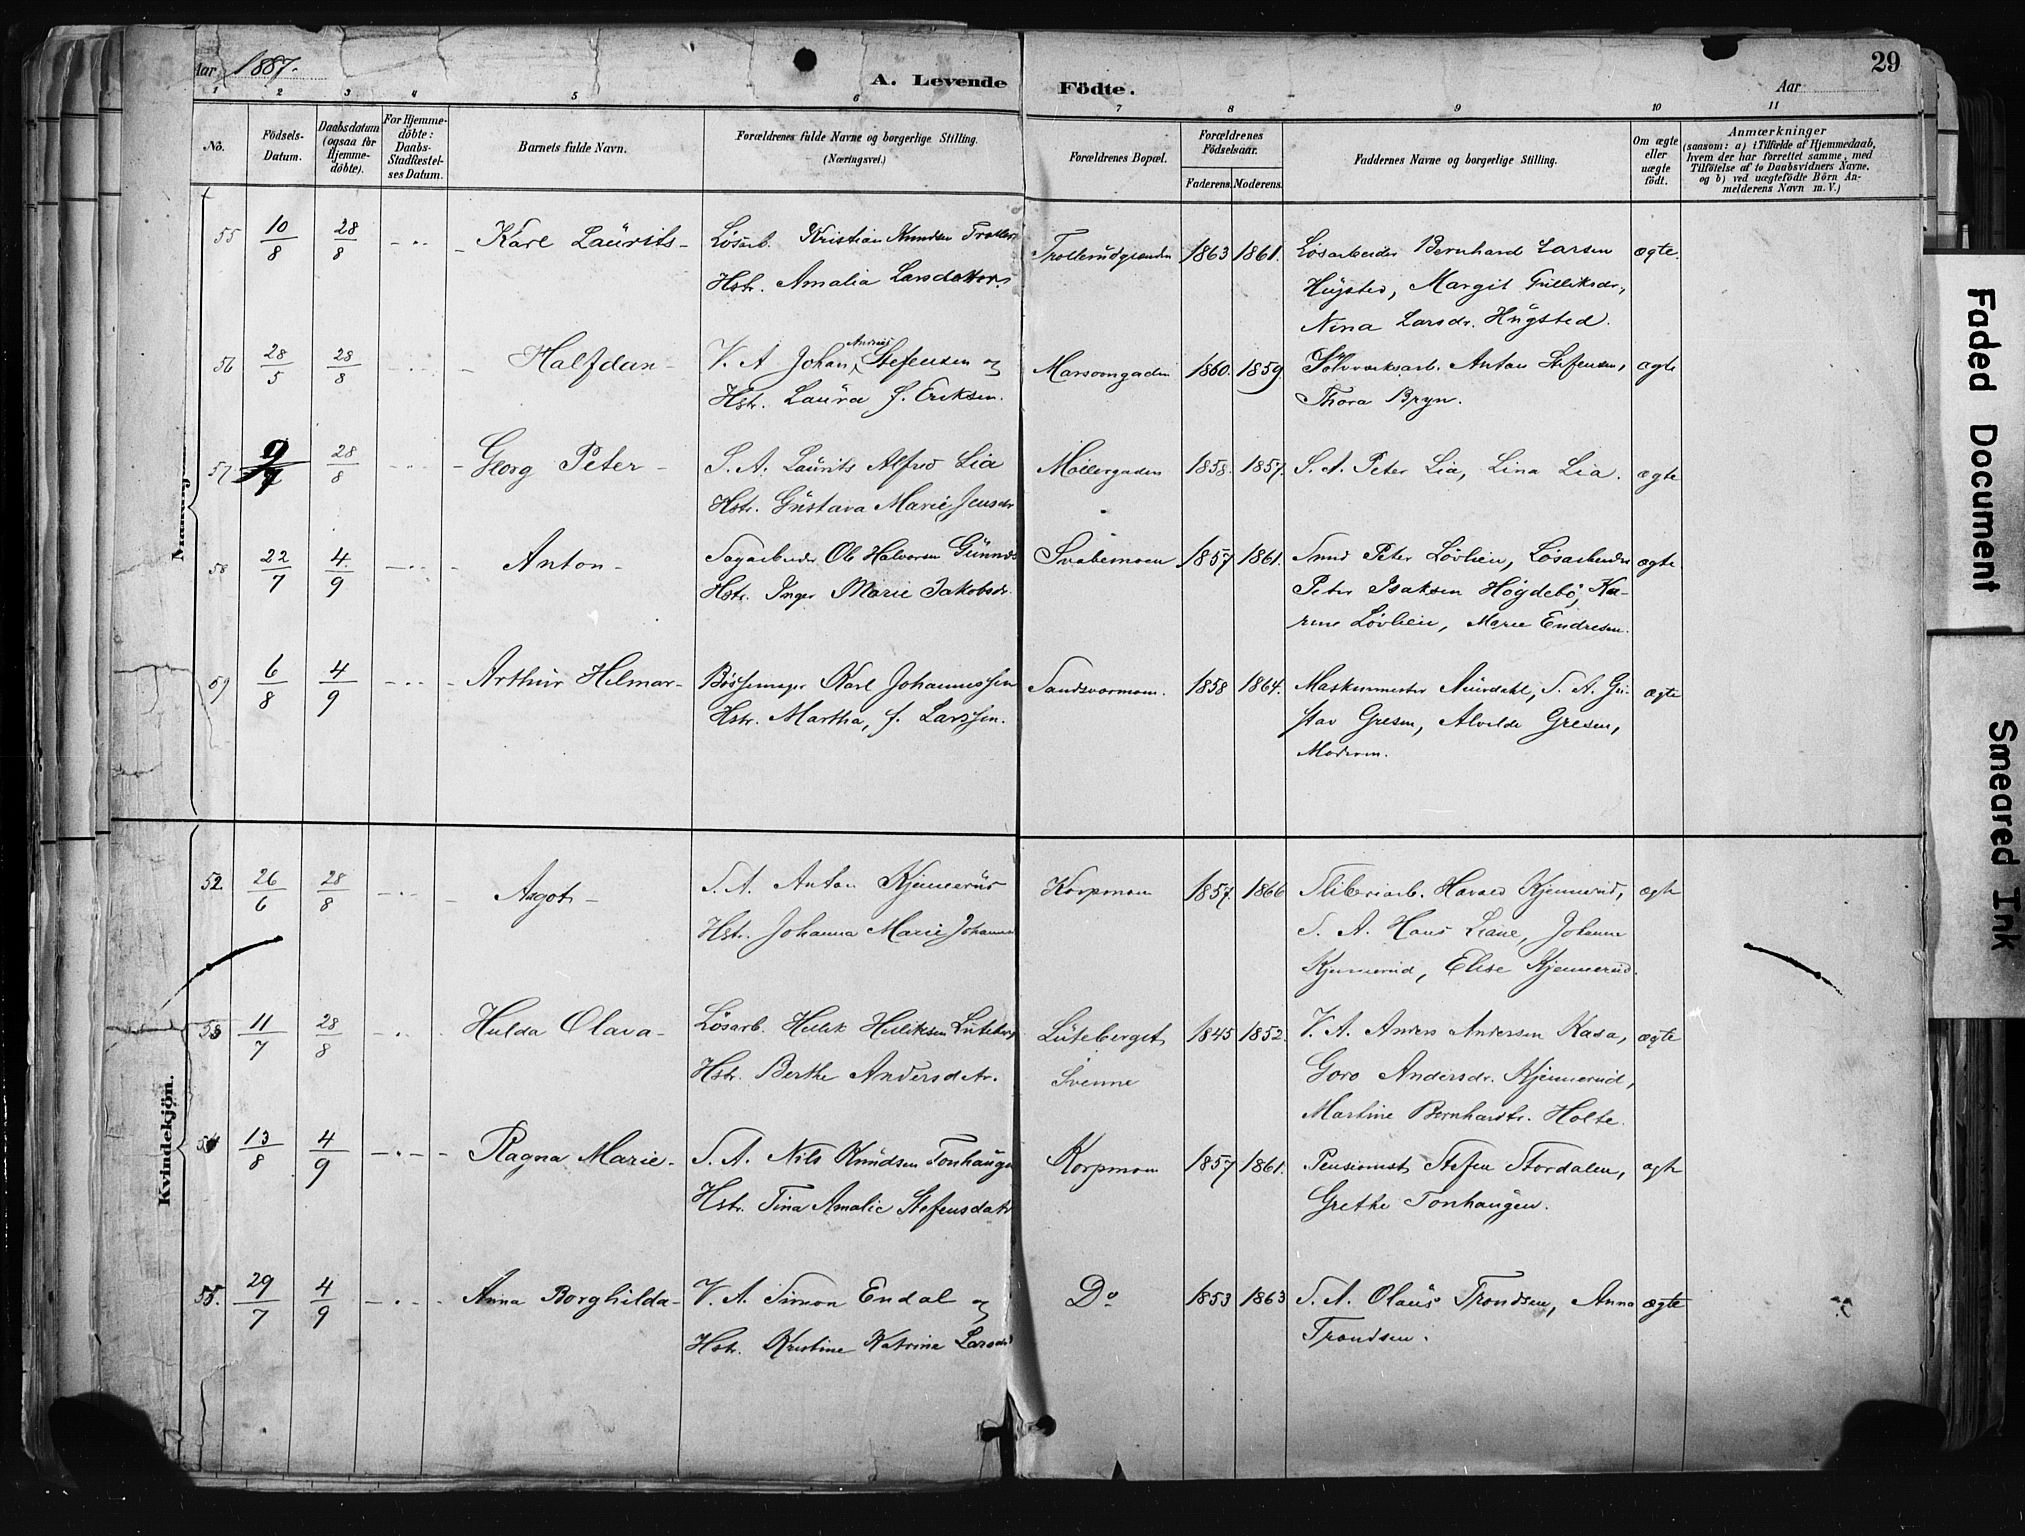 Aar 1887. A. Levende Födte. Aar 29
1 2 3 4 5 6 7 8 9 10 11
No. Födsels-Datum. Daabsdatum (ogsaa for Hjemme-döbte). For Hjemme-döbte: Daabs-Stadfæstel-ses Datum. Barnets fulde Navn. Forældrenes fulde Navne og borgerlige Stilling. (Næringsvei.) Forældrenes Bopæl. Forældrenes Födselsaar. Faderens. Moderens. Faddernes Navne og borgerlige Stilling. Om ægte eller uægte födt. Anmærkninger (saasom: a) i Tilfælde af Hjemmedaab, hvem der har forrettet samme, med Tilföielse af to Daabsvidners Navne, og b) ved uægtefödte Börn An-melderens Navn m. V.)
55 10/8 28/8 Karl Laurits - Løsarb. Kristian Knudsen Trollerud- Trollerudgranden 1863 1861. Løsarbeider Bernhard Larsen ægte.
Hstr. Amalia Larsdatter. Hügsted, Margit Gulliksdr.,
Nina Larsdr. Hügsted.
56 28/5 28/8 Halfdan - V. A Johan Andreas Stefensen og Marsovngaden 1860. 1859. Sölvverksarb. Anton Stefensen, ægte
Hstr. Laura f. Eriksen. Thora Bryn.
57 9/7 28/8 Georg Peter - S. A. Laurits Alfred Lia Møllergaden 1858. 1857. S. A. Peter Lia, Lina Lia. ægte
Hstr. Gustava Marie Jensdr
58 22/7 4/9 Anton - Sagarbeider Ole Halvorsen Svabemoen 1857 1861. Smed Peter Lövlien, Løsarbeider ægte
Hstr. Inger Marie Jakobsdr. Peter Isaksen Högdebö, Ka-
rine Lövlien, Marie Endresen.
59 6/8 4/9 Arthur Hilmar - Bössemager Karl Johannessen Sandsværmoen. 1858 1864. Maskinmester S. A. Gu- ægte
Hstr. Martha, f. Larssen. stav Gresen, Alvilde Gresen,
Moderen.
Kvindekjön.
52 26/6 28/8 Aagot - S. A. Anton Kjennerud Korpmoen 1857. 1866 Sliberiarb. Havard Kjennerud, ægte
Hstr. Johanna Marie S. A. Hans Liane, Johanne
Kjennerud, Elise Kjennerud.
53 11/7 28/8 Hulda Olava - Løsarb. Hellik Helliksen Luteberg Lüteberget 1845 1852. V. A. Anders Andersen Kasa, ægte
Hstr. Berthe Andersdtr. Svenne Goro Andersdr. Kjennerud,
Martine Bernhardtr. Holte.
54 13/8 4/9 Ragna Marie - S. A. Nils Knudsen Tonhaugen Korpmoen 1857 1861. Pensionist Stefen Stordalen, ægte
Hstr. Tina Amalie Stefensdatr Grethe Tonhaugen.
55. 29/7 4/9 Anna Borghilda - V. A. Simon Endal og Do 1853 1863 S. A. Olaus Trondsen, Anna ægte
Hstr. Kristine Katrine Larsdr Trondsen.
Faded Document
Smeared Ink